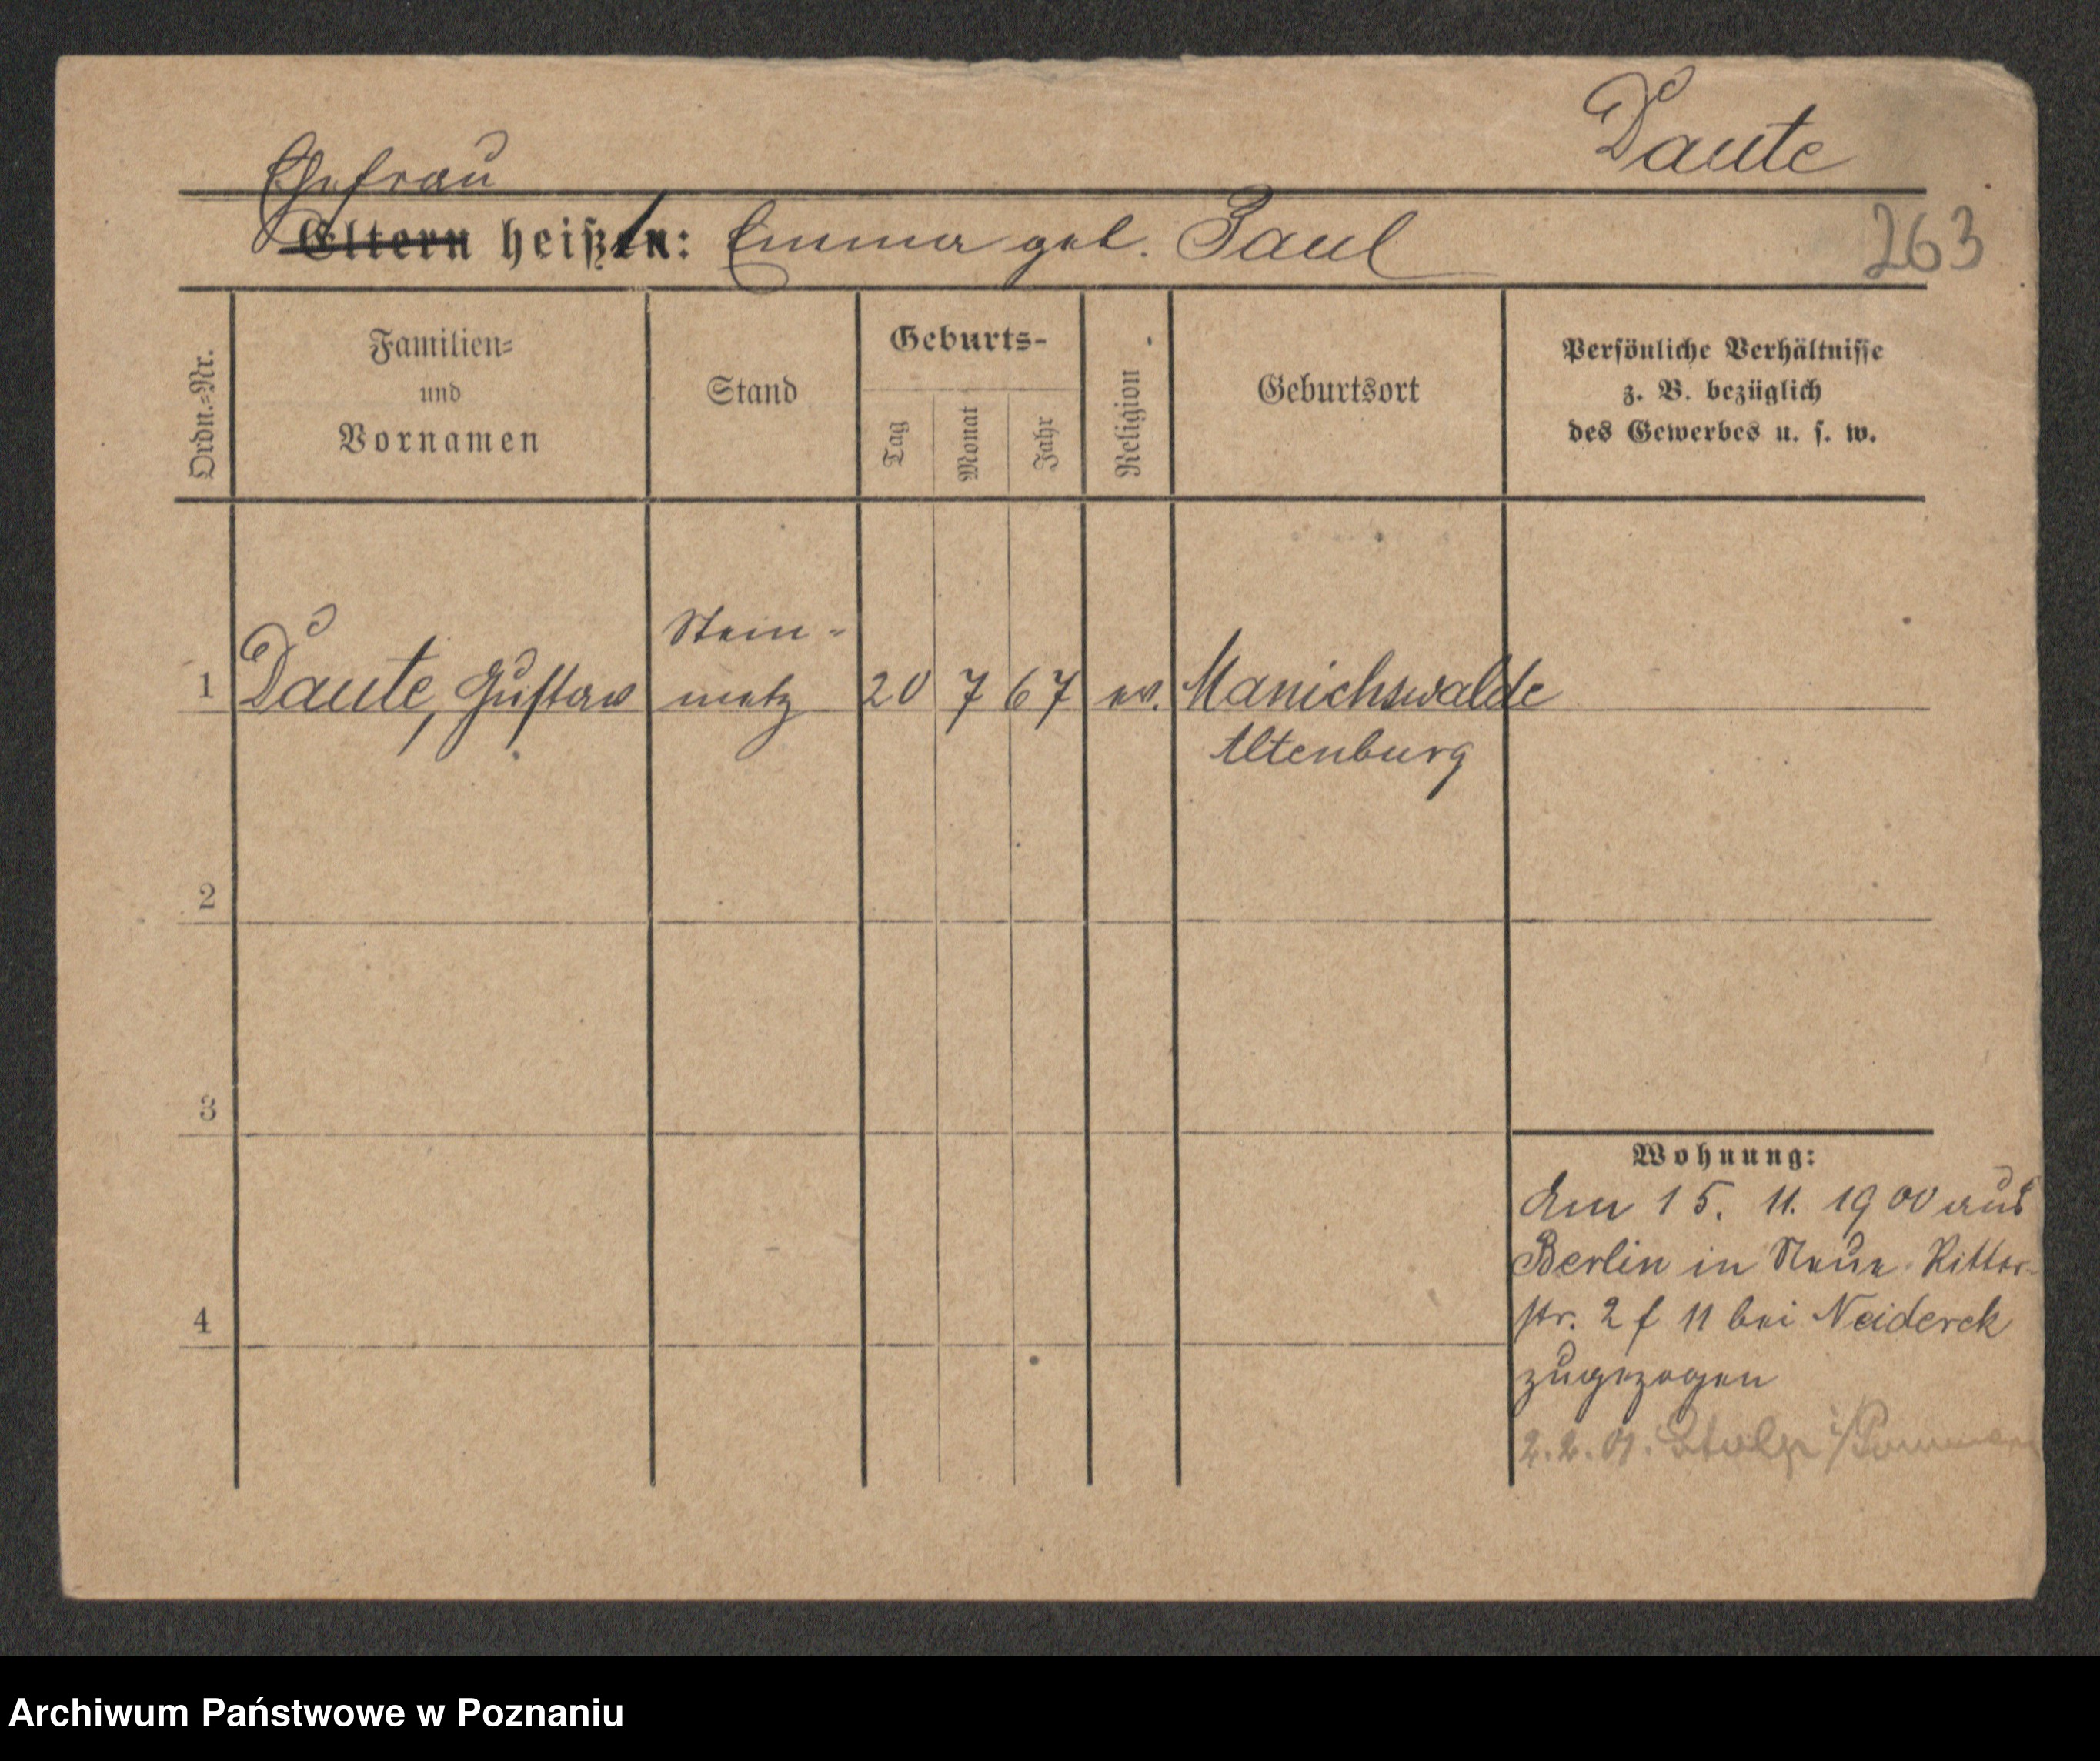 Daute
Ehefrau
Eltern heißt: Emma geb. Paul
263
Ordn.-Nr.
Familien-
und
Vornamen
Stand
Geburts-
Tag
Monat
Jahr
Religion
Geburtsort
Persönliche Verhältnisse
z. B. bezüglich
des Gewerbes u. s. w.
Stein-
1 Daute, Gustav metz 20 7 67 ev. Manichswalde
Altenburg
2
3
4
Wohnung:
Am 15. 11. 1900 aus
Berlin in Neue Ritter-
str. 2 f 11 bei Neiderek
zugezogen
2. 2. 01. Stolp i/Pommern
Archiwum Państwowe w Poznaniu